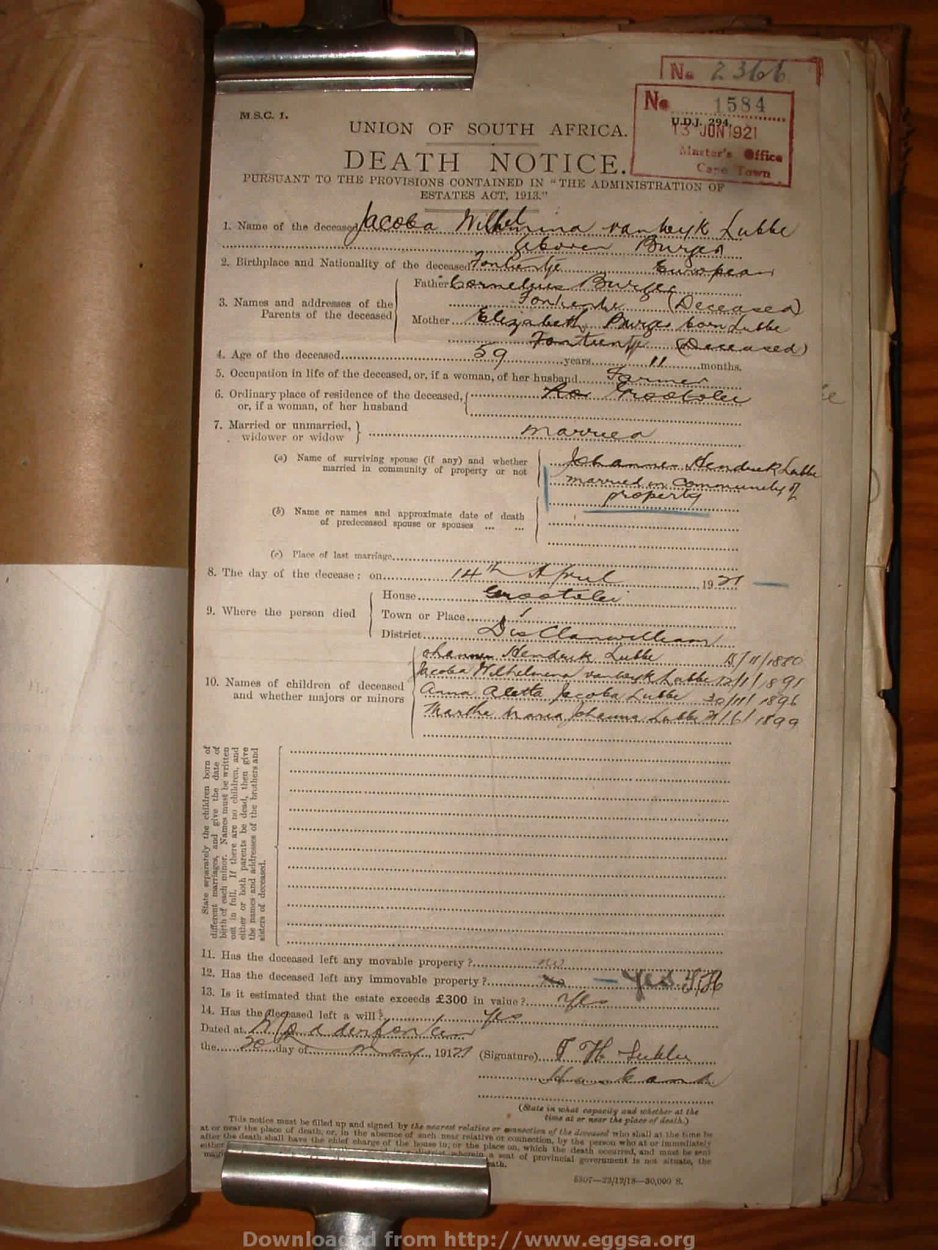 No 2366
No 1584
U.D.J. 294.
13 JUN 1921
Master's Office
Cape Town
M.S.C. 1.
UNION OF SOUTH AFRICA.
DEATH NOTICE.
PURSUANT TO THE PROVISIONS CONTAINED IN "THE ADMINISTRATION OF
ESTATES ACT, 1913."
1. Name of the deceased Jacoba Wilhelmina van Wyk Lubbe
geboren Burger
2. Birthplace and Nationality of the deceased Fonteintje European
3. Names and addresses of the Parents of the deceased
Father Cornelius Burger
(Deceased)
Mother Elizabeth Burger born Lubbe
(Deceased)
4. Age of the deceased 59 years 11 months.
5. Occupation in life of the deceased, or, if a woman, of her husband Farmer
6. Ordinary place of residence of the deceased,
or, if a woman, of her husband
7. Married or unmarried,
widower or widow
married
(a) Name of surviving spouse (if any) and whether
married in community of property or not
Johannes Hendrik Lubbe
married in community of
property
(b) Name or names and approximate date of death
of predeceased spouse or spouses ... ...
(c) Place of last marriage
8. The day of the decease: on 14th April 1921
9. Where the person died
House
Town or Place
District Dis Clanwilliam
10. Names of children of deceased
and whether majors or minors
Johannes Hendrik Lubbe /11/1880
Jacoba Wilhelmina van Wyk Lubbe 12/1/1891
Anna Aletta Jacoba Lubbe 30/11/1896
Martha Maria Johanna Lubbe /6/1899
State separately the children born of
different marriages, and give the date of
birth of each minor. Names must be written
out in full. If there are no children, and
either or both parents be dead, then give
the names and addresses of the brothers and
sisters of deceased.
11. Has the deceased left any movable property?
12. Has the deceased left any immovable property? Yes
13. Is it estimated that the estate exceeds £300 in value? Yes
14. Has the deceased left a will? Yes
Dated at
the 30 day of May 1921 (Signature) J H Lubbe
Husband
(State in what capacity and whether at the
time at or near the place of death.)
This notice must be filled up and signed by the nearest relative or connection of the deceased who shall at the time be
at or near the place of death, or, in the absence of such near relative or connection, by the person who at or immediately
after the death shall have the chief charge of the house in, or the place on, which the death occurred, and must be sent
either
district wherein a seat of provincial government is not situate, the
5307—23/12/18—30,000 S.
Downloaded from http://www.eggsa.org